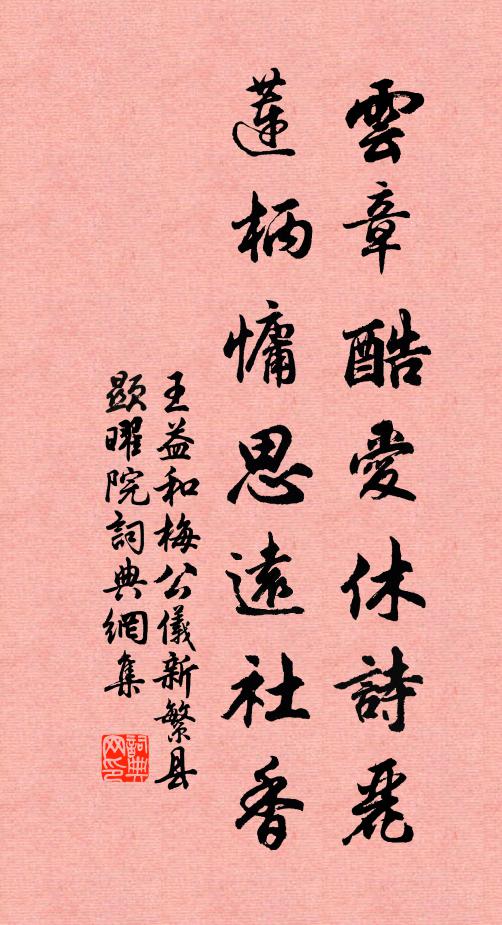 雲章酷愛休詩麗
蓮柄慵思遠社香
王益和梅公儀新繁县
顯曜院詞典網集
詞典网印